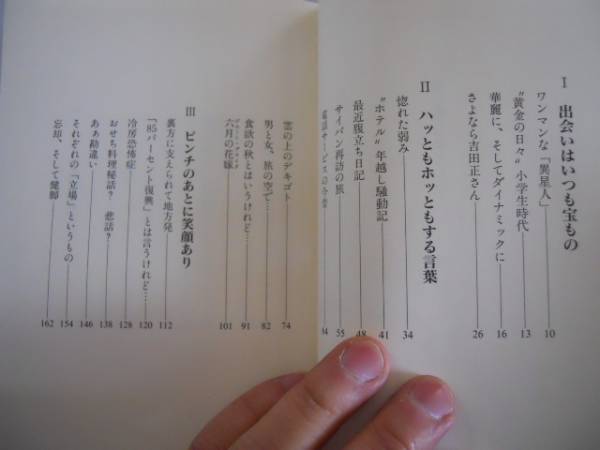 I 出会いはいつも宝もの
ワンマンな「異星人」 10
“黄金の日々”小学生時代 13
華麗に、そしてダイナミックに 16
さよなら吉田正さん 26
II ハッともホッともする言葉
惚れた弱み 34
“ホテル”年越し騒動記 41
最近腹立ち日記 48
サイパン再訪の旅 55
雲の上のデキゴト 74
男と女、旅の空で… 82
食欲の秋とはいうけれど… 91
六月の花嫁 101
III ピンチのあとに笑顔あり
裏方に支えられて地方発 112
「85パーセント復興」とは言うけれど… 120
冷房恐怖症 128
おせち料理秘話？ 悲話？ 138
あぁ勘違い 146
それぞれの「立場」というもの 154
忘却、そして健脚 162